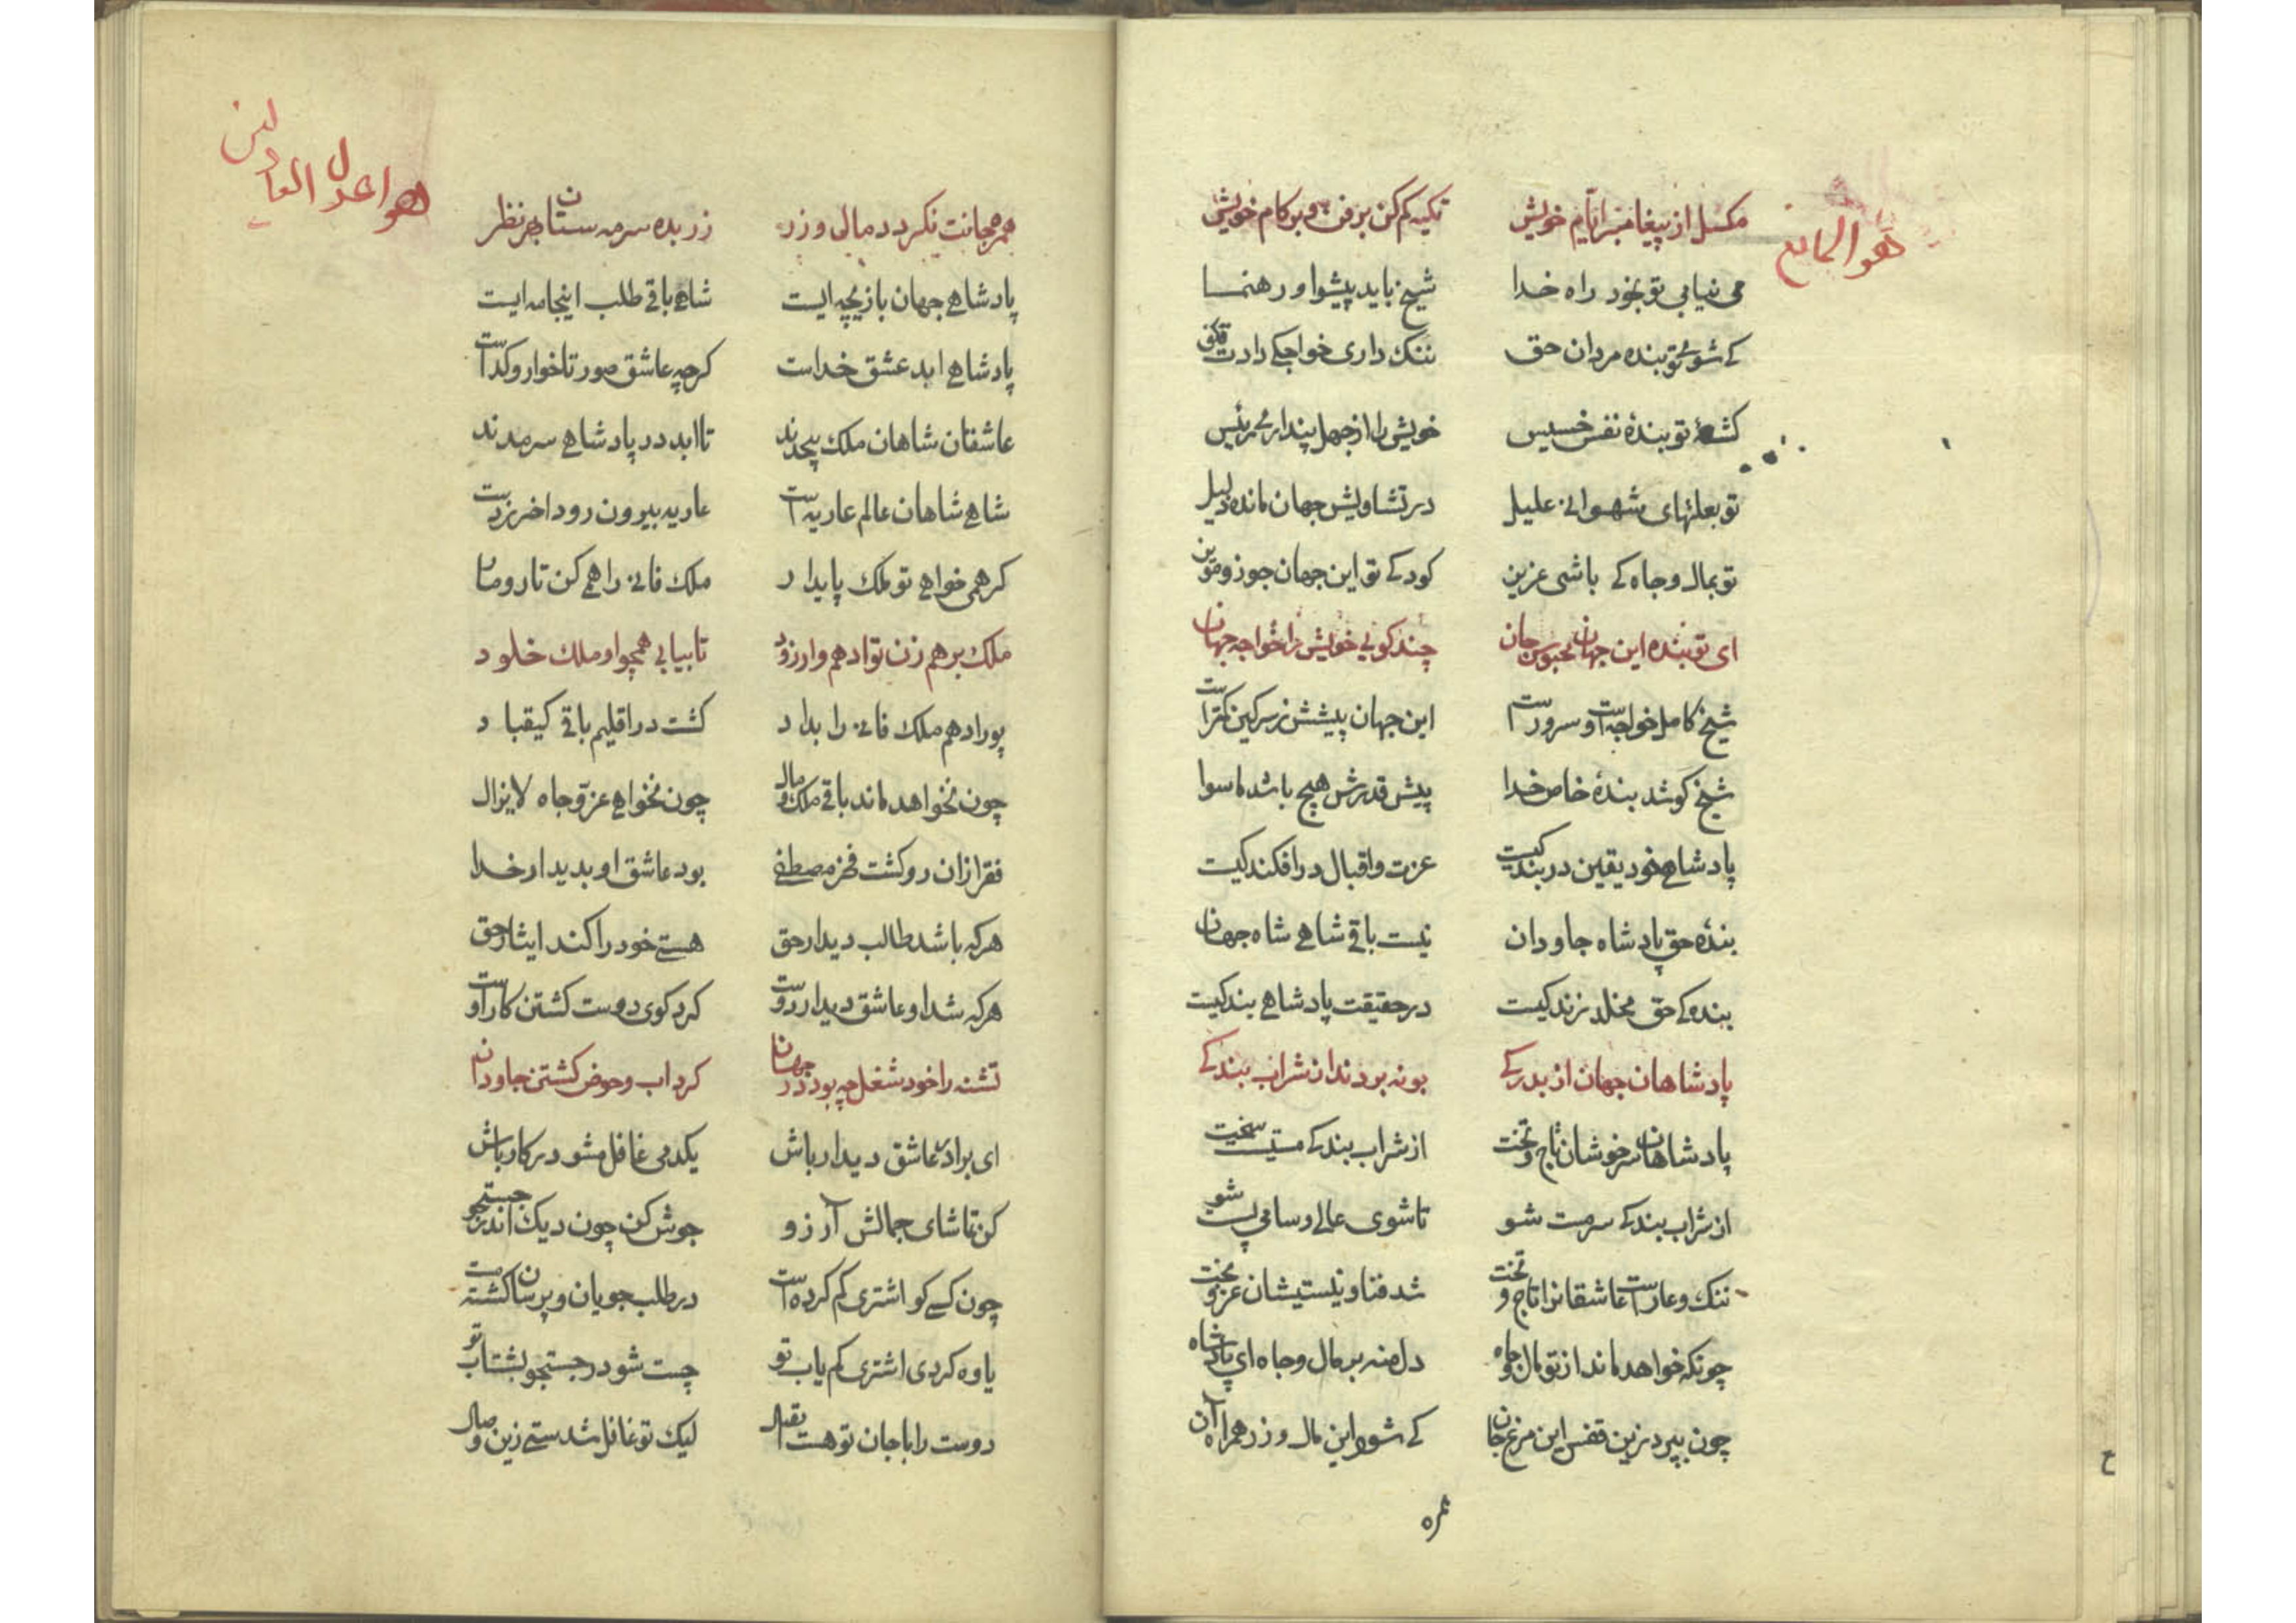 هو المانع
مکسل از پیغامبر ایام خویش تکیه کم کن بر فن و بر کام خویش
می نیابی تو بخود راه خدا شیخ باید پیشوا و رهنما
کے شوی تو بنده مردان حق ننک داری خواجکے دارت قلق
کشتهٔ تو بندهٔ نفس خسیس خویش را از جهل پنداری رئیس
تو بعلتهای شهوانی علیل در جهان مانده ذلیل
تو بمال و جاه کے باشی عزیز کودکے تو این جهان جوز و مویز
ای تو بنده این جهان محبوس جان چند کویی خویش را خواجه جهان
شیخ کامل خواجه است و سرورست این جهان پیشش ز سرکین کمترست
شیخ کو شد بندهٔ خاص خدا پیش قدرش هیچ باشد ماسوا
پادشاهی خود یقین در بندکیست عزت و اقبال در افکندکیست
بندهٔ حق پادشاه جاودان نیست باقی شاهی شاه جهان
بندهکے حق مخلد زندکیست در حقیقت پادشاهی بندکیست
پادشاهان جهان از بدرکے بو نه بردند از شراب بندکے
پادشاهان سرخوشان تاج و تخت از شراب بندکے مستیست سخت
از شراب بندکے سرمست شو تا شوی عالی و سامی پست شو
ننک و عارست عاشقانرا تاج و تخت شد فنا و نیستیشان عز و بخت
چونکه خواهد ماند از تو مال و جاه دل منه بر مال و جاه ای پادشاه
چون بپرد زین قفس این مرغ جان کے شود این مال و زر همراه آن
همره
هو اعدل العادلین
همره جانت نکردد مال و زر زر بده سرمه ستان بهر نظر
پادشاهی جهان بازیچه ایست شاهی باقی طلب اینجامه ایست
پادشاهی ابد عشق خداست کرچه عاشق صورتا خوار و کداست
عاشقان شاهان ملک بیحدند تا ابد در پادشاهی سرمدند
شاهی شاهان عالم عاریه است عاریه بیرون رود اخر ز دست
کر همی خواهی تو ملک پایدار ملک فانی را همی کن تار و مار
ملک بر هم زن تو ادهم وار زود تا بیابی همچو او ملک خلود
پور ادهم ملک فانی را بداد کشت در اقلیم باقی کیقباد
چون نخواهد ماند باقی ملک و مال چون نخواهی عز و جاه لایزال
فقر ازان رو کشت فخر مصطفی بود عاشق او بدیدار خدا
هرکه باشد طالب دیدار حق هستی خود را کند ایثار حق
هرکه شد او عاشق دیدار دوست کرد کوی دوست کشتن کار اوست
تشنه را خود شغل چه بود در جهان کرد اب و حوض کشتن جاودان
ای برادر عاشق دیدار باش یکدمی غافل مشو در کار باش
کن تماشای جمالش آرزو جوش کن چون دیک اندر جستجو
چون کسی کو اشتری کم کرده است در طلب جویان و پرسان کشته است
یاوه کردی اشتری کم یاب تو چست شو در جستجو بشتاب تو
دوست را با جان تو هست اتصال لیک تو غافل شدستی زین وصال